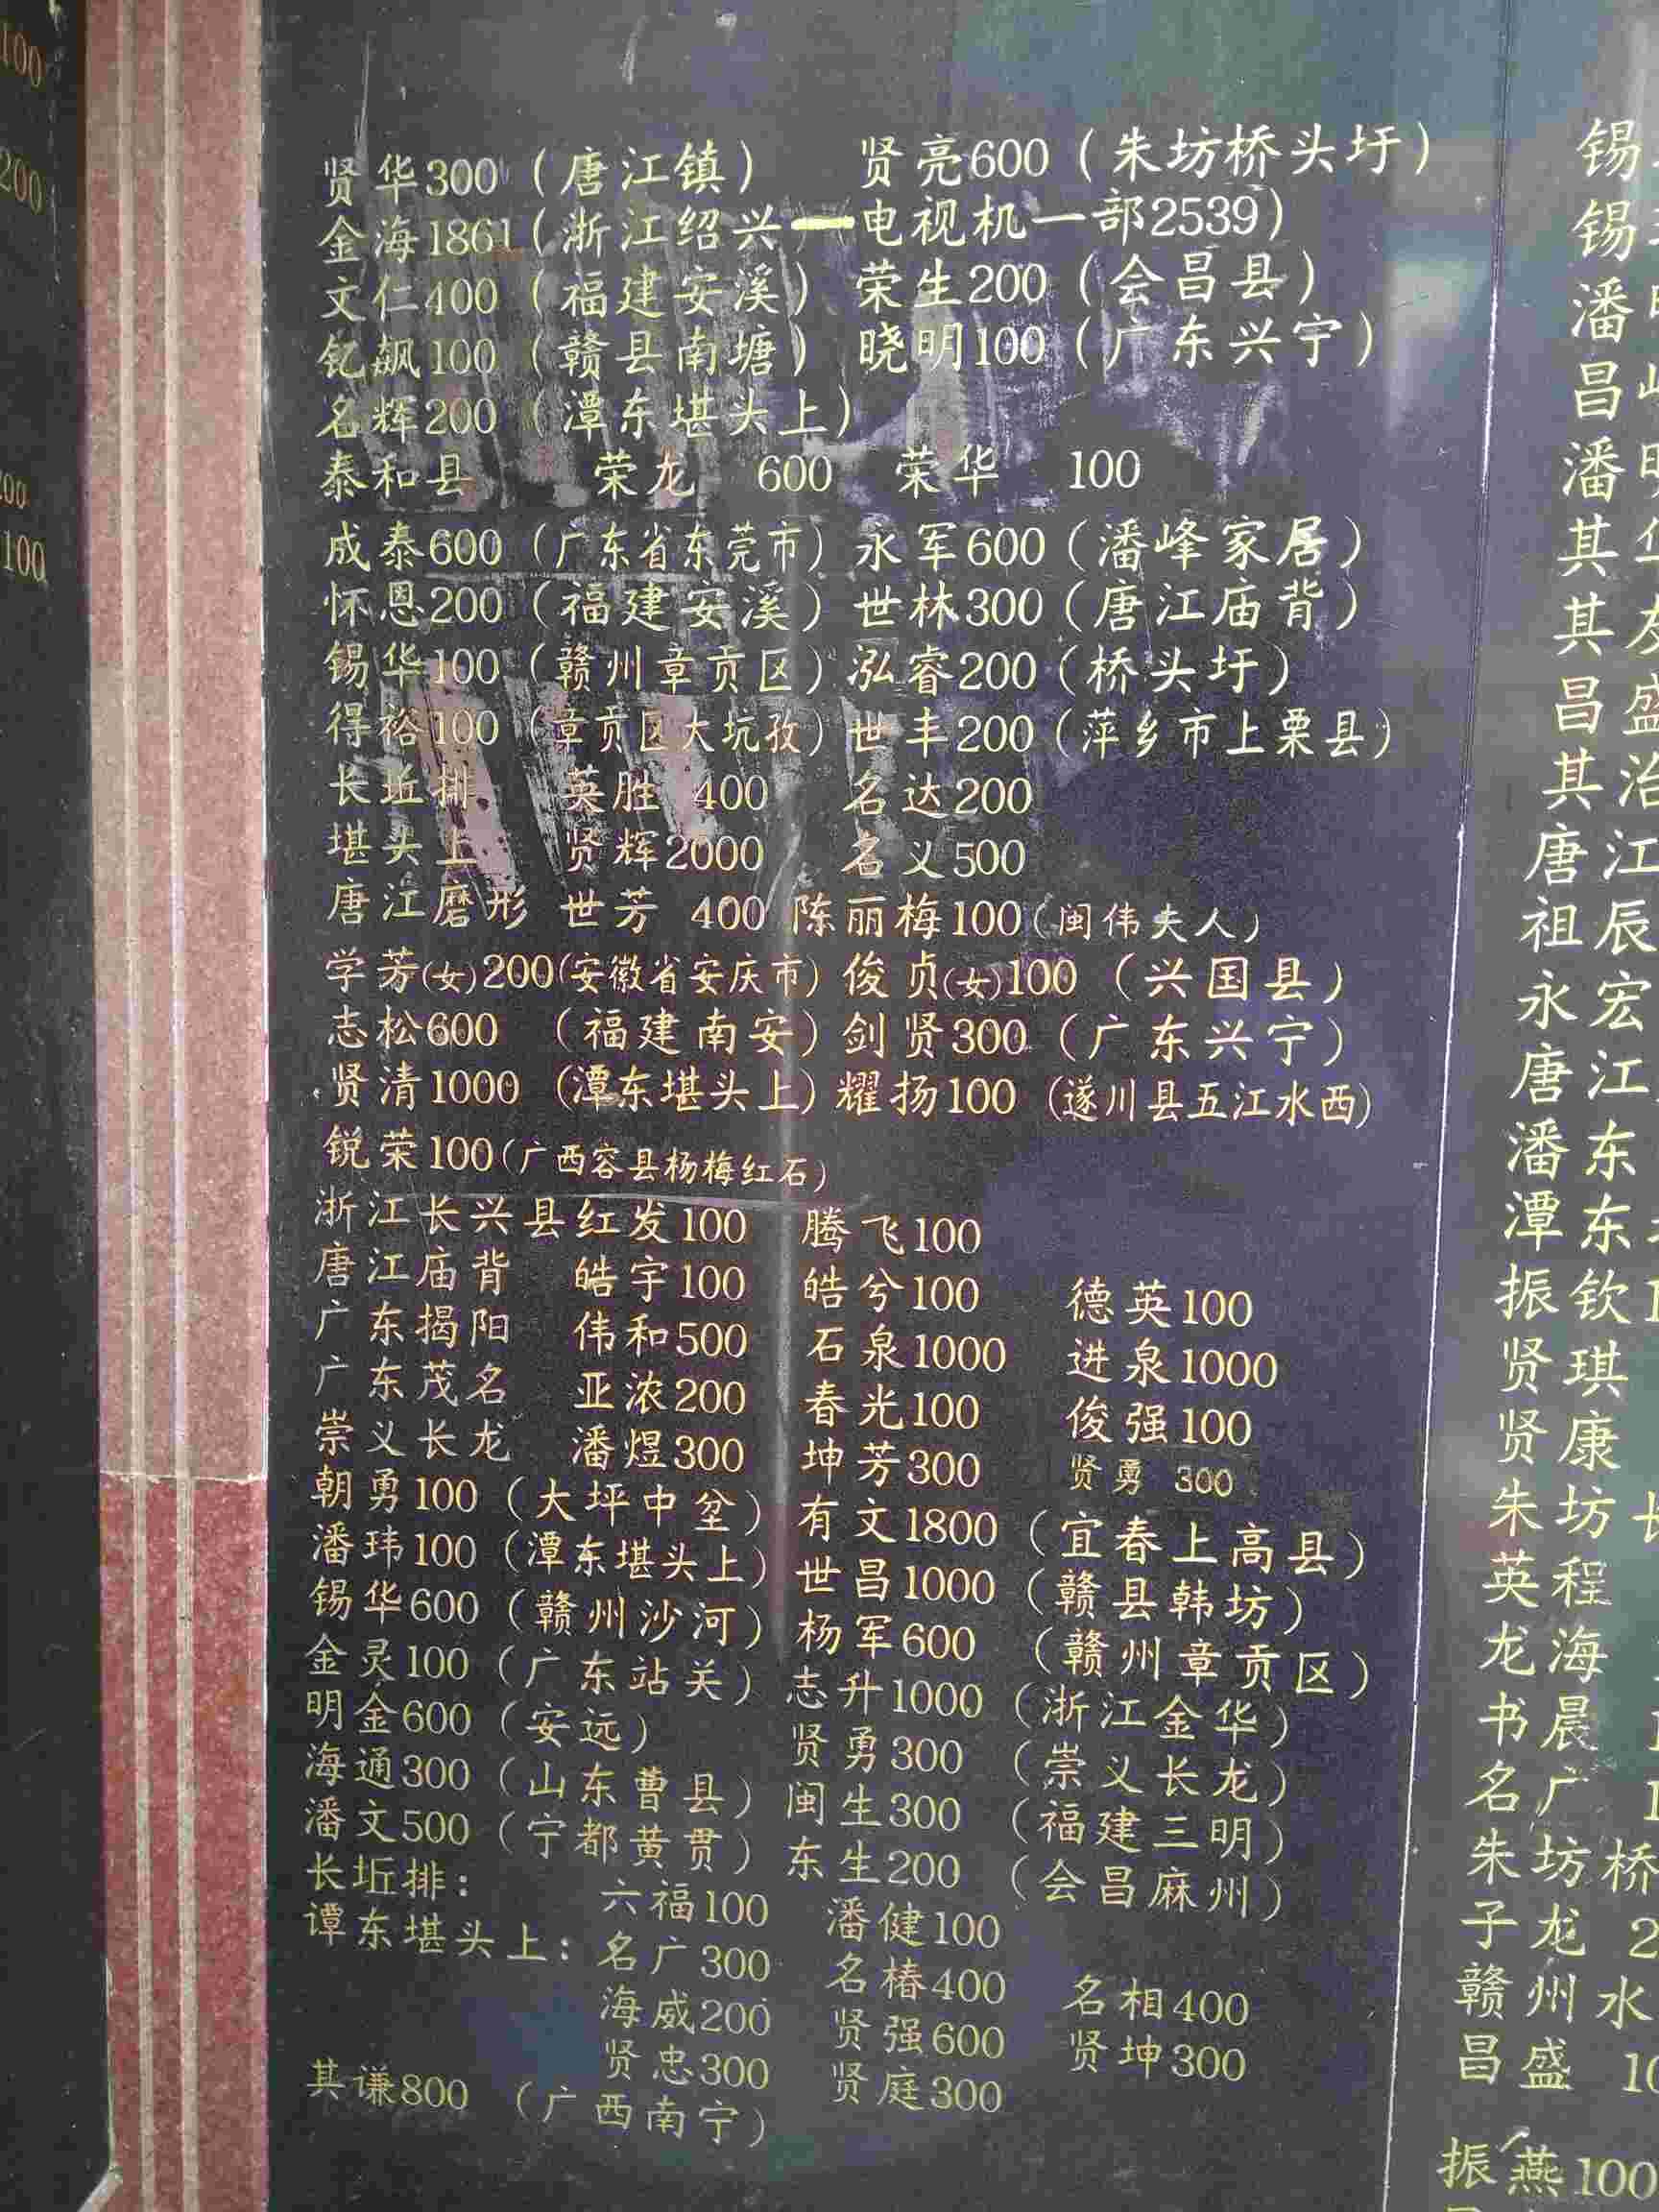 贤华300（唐江镇） 贤亮600（朱坊桥头圩）
金海1861（浙江绍兴）—电视机一部2539）
文仁400（福建安溪） 荣生200（会昌县）
钇飙100（赣县南塘） 晓明100（广东兴宁）
名辉200（潭东堪头上）
泰和县 荣龙 600 荣华 100
成泰600（广东省东莞市）永军600（潘峰家居）
怀恩200（福建安溪）世林300（唐江庙背）
锡华100（赣州章贡区）泓睿200（桥头圩）
得裕100（章贡区大坑孜）世丰200（萍乡市上栗县）
长坵排 英胜 400 名达200
堪头上 贤辉2000 名义500
唐江磨形 世芳 400 陈丽梅100（闽伟夫人）
学芳(女)200（安徽省安庆市）俊贞(女)100（兴国县）
志松600 （福建南安）剑贤300（广东兴宁）
贤清1000（潭东堪头上）耀扬100（遂川县五江水西）
锐荣100（广西容县杨梅红石）
浙江长兴县红发100 腾飞100
唐江庙背 皓宇100 皓兮100 德英100
广东揭阳 伟和500 石泉1000 进泉1000
广东茂名 亚浓200 春光100 俊强100
崇义长龙 潘煜300 坤芳300 贤勇 300
朝勇100（大坪中坌）有文1800（宜春上高县）
潘玮100（潭东堪头上）世昌1000（赣县韩坊）
锡华600（赣州沙河）杨军600 （赣州章贡区）
金灵100（广东站关）志升1000（浙江金华）
明金600（安远） 贤勇300 （崇义长龙）
海通300（山东曹县）闽生300 （福建三明）
潘文500（宁都黄贯）东生200 （会昌麻州）
长坵排： 六福100 潘健100
谭东堪头上：名广300 名椿400 名相400
海威200 贤强600 贤坤300
贤忠300 贤庭300
其谦800 （广西南宁）
100
200
200
100
锡
锡
潘
昌
潘
其
其
昌盛
其治
唐江
祖辰
永宏
唐江
潘东
潭东
振钦1
贤琪
贤康
朱坊
英程
龙海
书晨
名广
朱坊桥
子龙 2
赣州水
昌盛 10
振燕100